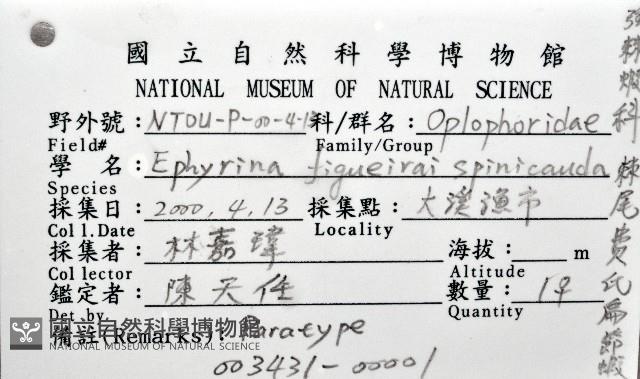 國立自然科學博物館
NATIONAL MUSEUM OF NATURAL SCIENCE
野外號：NTOU-P-00-4-13 科/群名：Oplophoridae
Field# Family/Group
學 名：Ephyrina figueirai spinicauda
Species
採集日：2000.4.13 採集點：大溪漁市
Coll.Date Locality
採集者：林嘉瑋 海拔： m
Collector Altitude
鑑定者：陳天任 數量：1♀
Det by Quantity
備註(Remarks)：Paratype
003431-00001
國立自然科學博物館
NATIONAL MUSEUM OF NATURAL SCIENCE
棘尾費氏扁節蝦